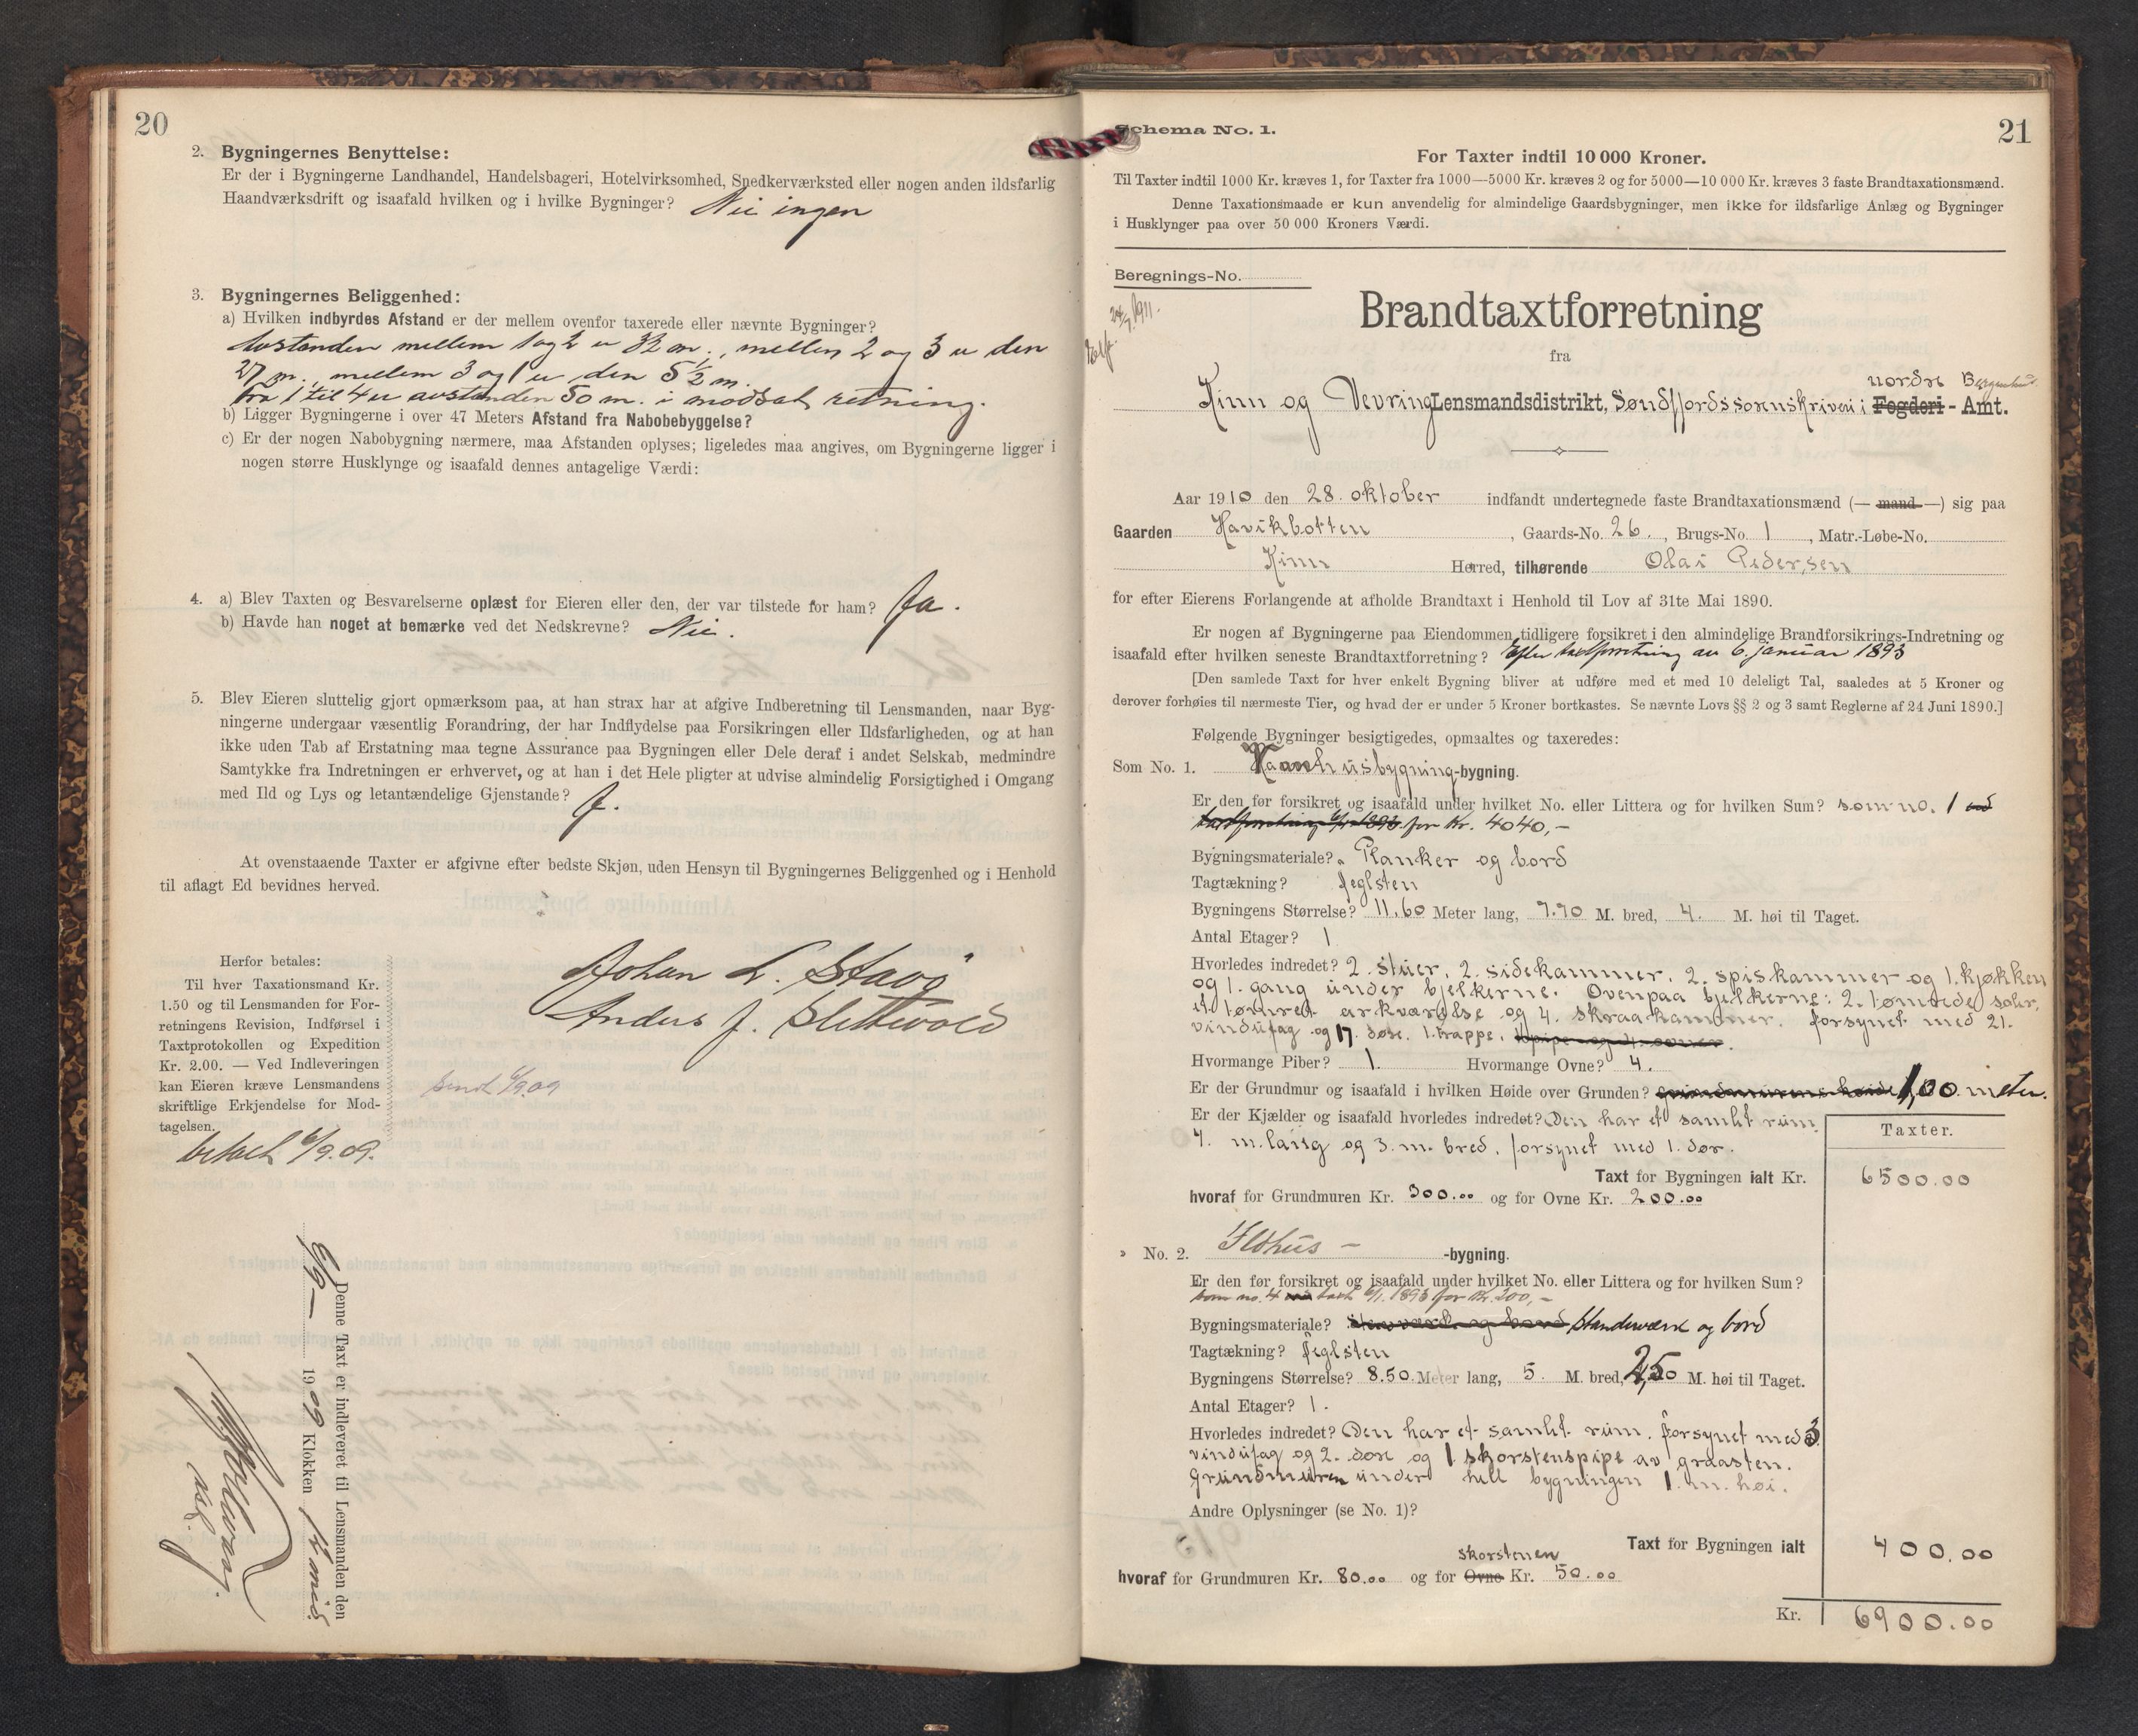 20
2. Bygningernes Benyttelse:
Er der i Bygningerne Landhandel, Handelsbageri, Hotelvirksomhed, Snedkerværksted eller nogen anden ildsfarlig
Haandværksdrift og isaafald hvilken og i hvilke Bygninger? Nei ingen
3. Bygningernes Beliggenhed:
a) Hvilken indbyrdes Afstand er der mellem ovenfor taxerede eller nævnte Bygninger?
Avstanden mellem 1 og 2 er 32 m., mellem 2 og 3 er den
27 m., mellem 3 og 1 er den 5 1/2 m.
fra 1 til 4 er avstanden 50 m. i modsat retning.
b) Ligger Bygningerne i over 47 Meters Afstand fra Nabobebyggelse?
c) Er der nogen Nabobygning nærmere, maa Afstanden oplyses; ligeledes maa angives, om Bygningerne ligger i
nogen større Husklynge og isaafald dennes antagelige Værdi:
4. a) Blev Taxten og Besvarelserne oplæst for Eieren eller den, der var tilstede for ham? Ja.
b) Havde han noget at bemærke ved det Nedskrevne? Nei.
5. Blev Eieren sluttelig gjort opmærksom paa, at han strax har at afgive Indberetning til Lensmanden, naar Byg-
ningerne undergaar væsentlig Forandring, der har Indflydelse paa Forsikringen eller Ildsfarligheden, og at han
ikke uden Tab af Erstatning maa tegne Assurance paa Bygningen eller Dele deraf i andet Selskab, medmindre
Samtykke fra Indretningen er erhvervet, og at han i det Hele pligter at udvise almindelig Forsigtighed i Omgang
med Ild og Lys og letantændelige Gjenstande? J.
At ovenstaaende Taxter er afgivne efter bedste Skjøn, uden Hensyn til Bygningernes Beliggenhed og i Henhold
til aflagt Ed bevidnes herved.
Johan L. Stavø
Anders J. Slettevold
Herfor betales:
Til hver Taxationsmand Kr.
1.50 og til Lensmanden for For-
retningens Revision, Indførsel i
Taxtprotokollen og Expedition
Kr. 2.00. — Ved Indleveringen
kan Eieren kræve Lensmandens
skriftlige Erkjendelse for Mod-
tagelsen.
sendt 6/9 09
betalt 6/9.09.
Denne Taxt er indleveret til Lensmanden den
6/9 — 1909 Klokken
Schema No. 1.
21
For Taxter indtil 10 000 Kroner.
Til Taxter indtil 1000 Kr. kræves 1, for Taxter fra 1000—5000 Kr. kræves 2 og for 5000—10 000 Kr. kræves 3 faste Brandtaxationsmænd.
Denne Taxationsmaade er kun anvendelig for almindelige Gaardsbygninger, men ikke for ildsfarlige Anlæg og Bygninger
i Husklynger paa over 50 000 Kroners Værdi.
Beregnings-No.
Brandtaxtforretning
fra
nordre Bergenhus
Kinn og Vevring Lensmandsdistrikt, Søndfjords sorenskriveri i Fogderi - Amt.
Aar 1910 den 28. oktober indfandt undertegnede faste Brandtaxationsmænd (— mand —) sig paa
Gaarden Havikbotten, Gaards-No. 26., Brugs-No. 1, Matr.-Løbe-No.
Kinn Herred, tilhørende Olai Pedersen
for efter Eierens Forlangende at afholde Brandtaxt i Henhold til Lov af 31te Mai 1890.
Er nogen af Bygningerne paa Eiendommen tidligere forsikret i den almindelige Brandforsikrings-Indretning og
isaafald efter hvilken seneste Brandtaxtforretning? Efter taxtforretning av 6. januar 1893
[Den samlede Taxt for hver enkelt Bygning bliver at udføre med et med 10 deleligt Tal, saaledes at 5 Kroner og
derover forhøies til nærmeste Tier, og hvad der er under 5 Kroner bortkastes. Se nævnte Lovs §§ 2 og 3 samt Reglerne af 24 Juni 1890.]
Følgende Bygninger besigtigedes, opmaaltes og taxeredes:
Som No. 1. Vaanehusbygning-bygning.
Er den før forsikret og isaafald under hvilket No. eller Littera og for hvilken Sum? som no. 1 ved
taxtforretning 6/1 1893 for Kr. 4040,-
Bygningsmateriale? Planker og bord
Tagtækning? Teglsten
Bygningens Størrelse? 11.60 Meter lang, 7.70 M. bred, 4. M. høi til Taget.
Antal Etager? 1
Hvorledes indredet? 2. stuer. 2. sidekammer. 2. spiskammer og 1. kjøkken
og 1. gang under bjelkerne. Ovenpaa bjelkerne: 2. tømrede saler,
et tømret arkværelse og 4. skraakammer. forsynet med 21.
vindufag og 17. døre. 1. trappe.
Hvormange Piber? 1. Hvormange Ovne? 4.
Er der Grundmur og isaafald i hvilken Høide over Grunden? grundmurens høide 1,00 meter.
Er der Kjælder og isaafald hvorledes indredet? Den har et samlet rum,
7. m. lang og 3. m. bred. forsynet med 1. dør.
Taxter.
Taxt for Bygningen ialt Kr. 6500.00
hvoraf for Grundmuren Kr. 300.00 og for Ovne Kr. 200.00
" No. 2. Ildhus - -bygning.
Er den før forsikret og isaafald under hvilket No. eller Littera og for hvilken Sum?
som no. 4 ved taxt 6/1. 1893 for Kr. 200,-
Bygningsmateriale? Stenværk og bord Standeværk og bord
Tagtækning? Teglsten
Bygningens Størrelse? 8.50. Meter lang, 5. M. bred, 2,50 M. høi til Taget.
Antal Etager? 1.
Hvorledes indredet? Den har et samlet rum. forsynet med 3
vindufag og 2. døre og 1 skorstenspipe av graasten.
Grundmuren under hele bygningen 1. m. høi.
Andre Oplysninger (se No. 1)?
Taxt for Bygningen ialt 400.00
skorstenen
hvoraf for Grundmuren Kr. 80.00 og for Ovne Kr. 50.00
Kr. 6900.00